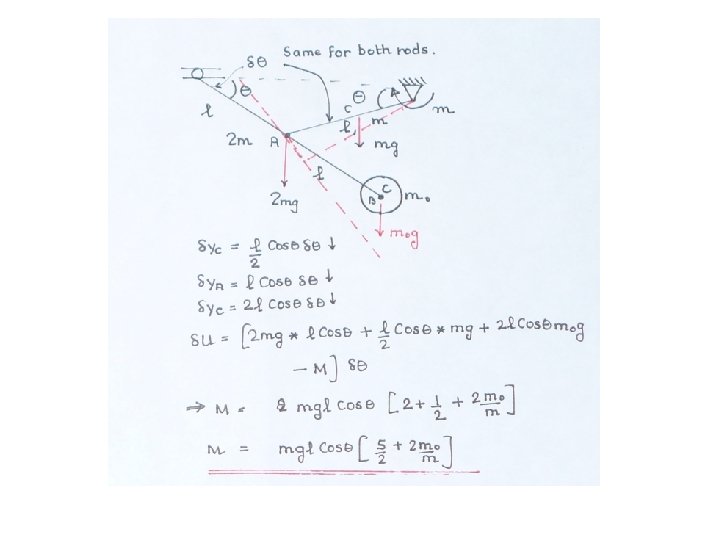 Same for both rods.
δθ
θ
θ
l
c
m
m
l
mg
2m
A
l
2mg
B
C
m₀
m₀g
δyc = l/2 Cosθ δθ ↓
δyA = l Cosθ δθ ↓
δyc = 2l Cosθ δθ ↓
δU = [2mg * l Cosθ + l/2 Cosθ * mg + 2l Cosθ m₀g
− M] δθ
⇒ M = mgl Cosθ [2 + 1/2 + 2m₀/m]
M = mgl Cosθ [5/2 + 2m₀/m]